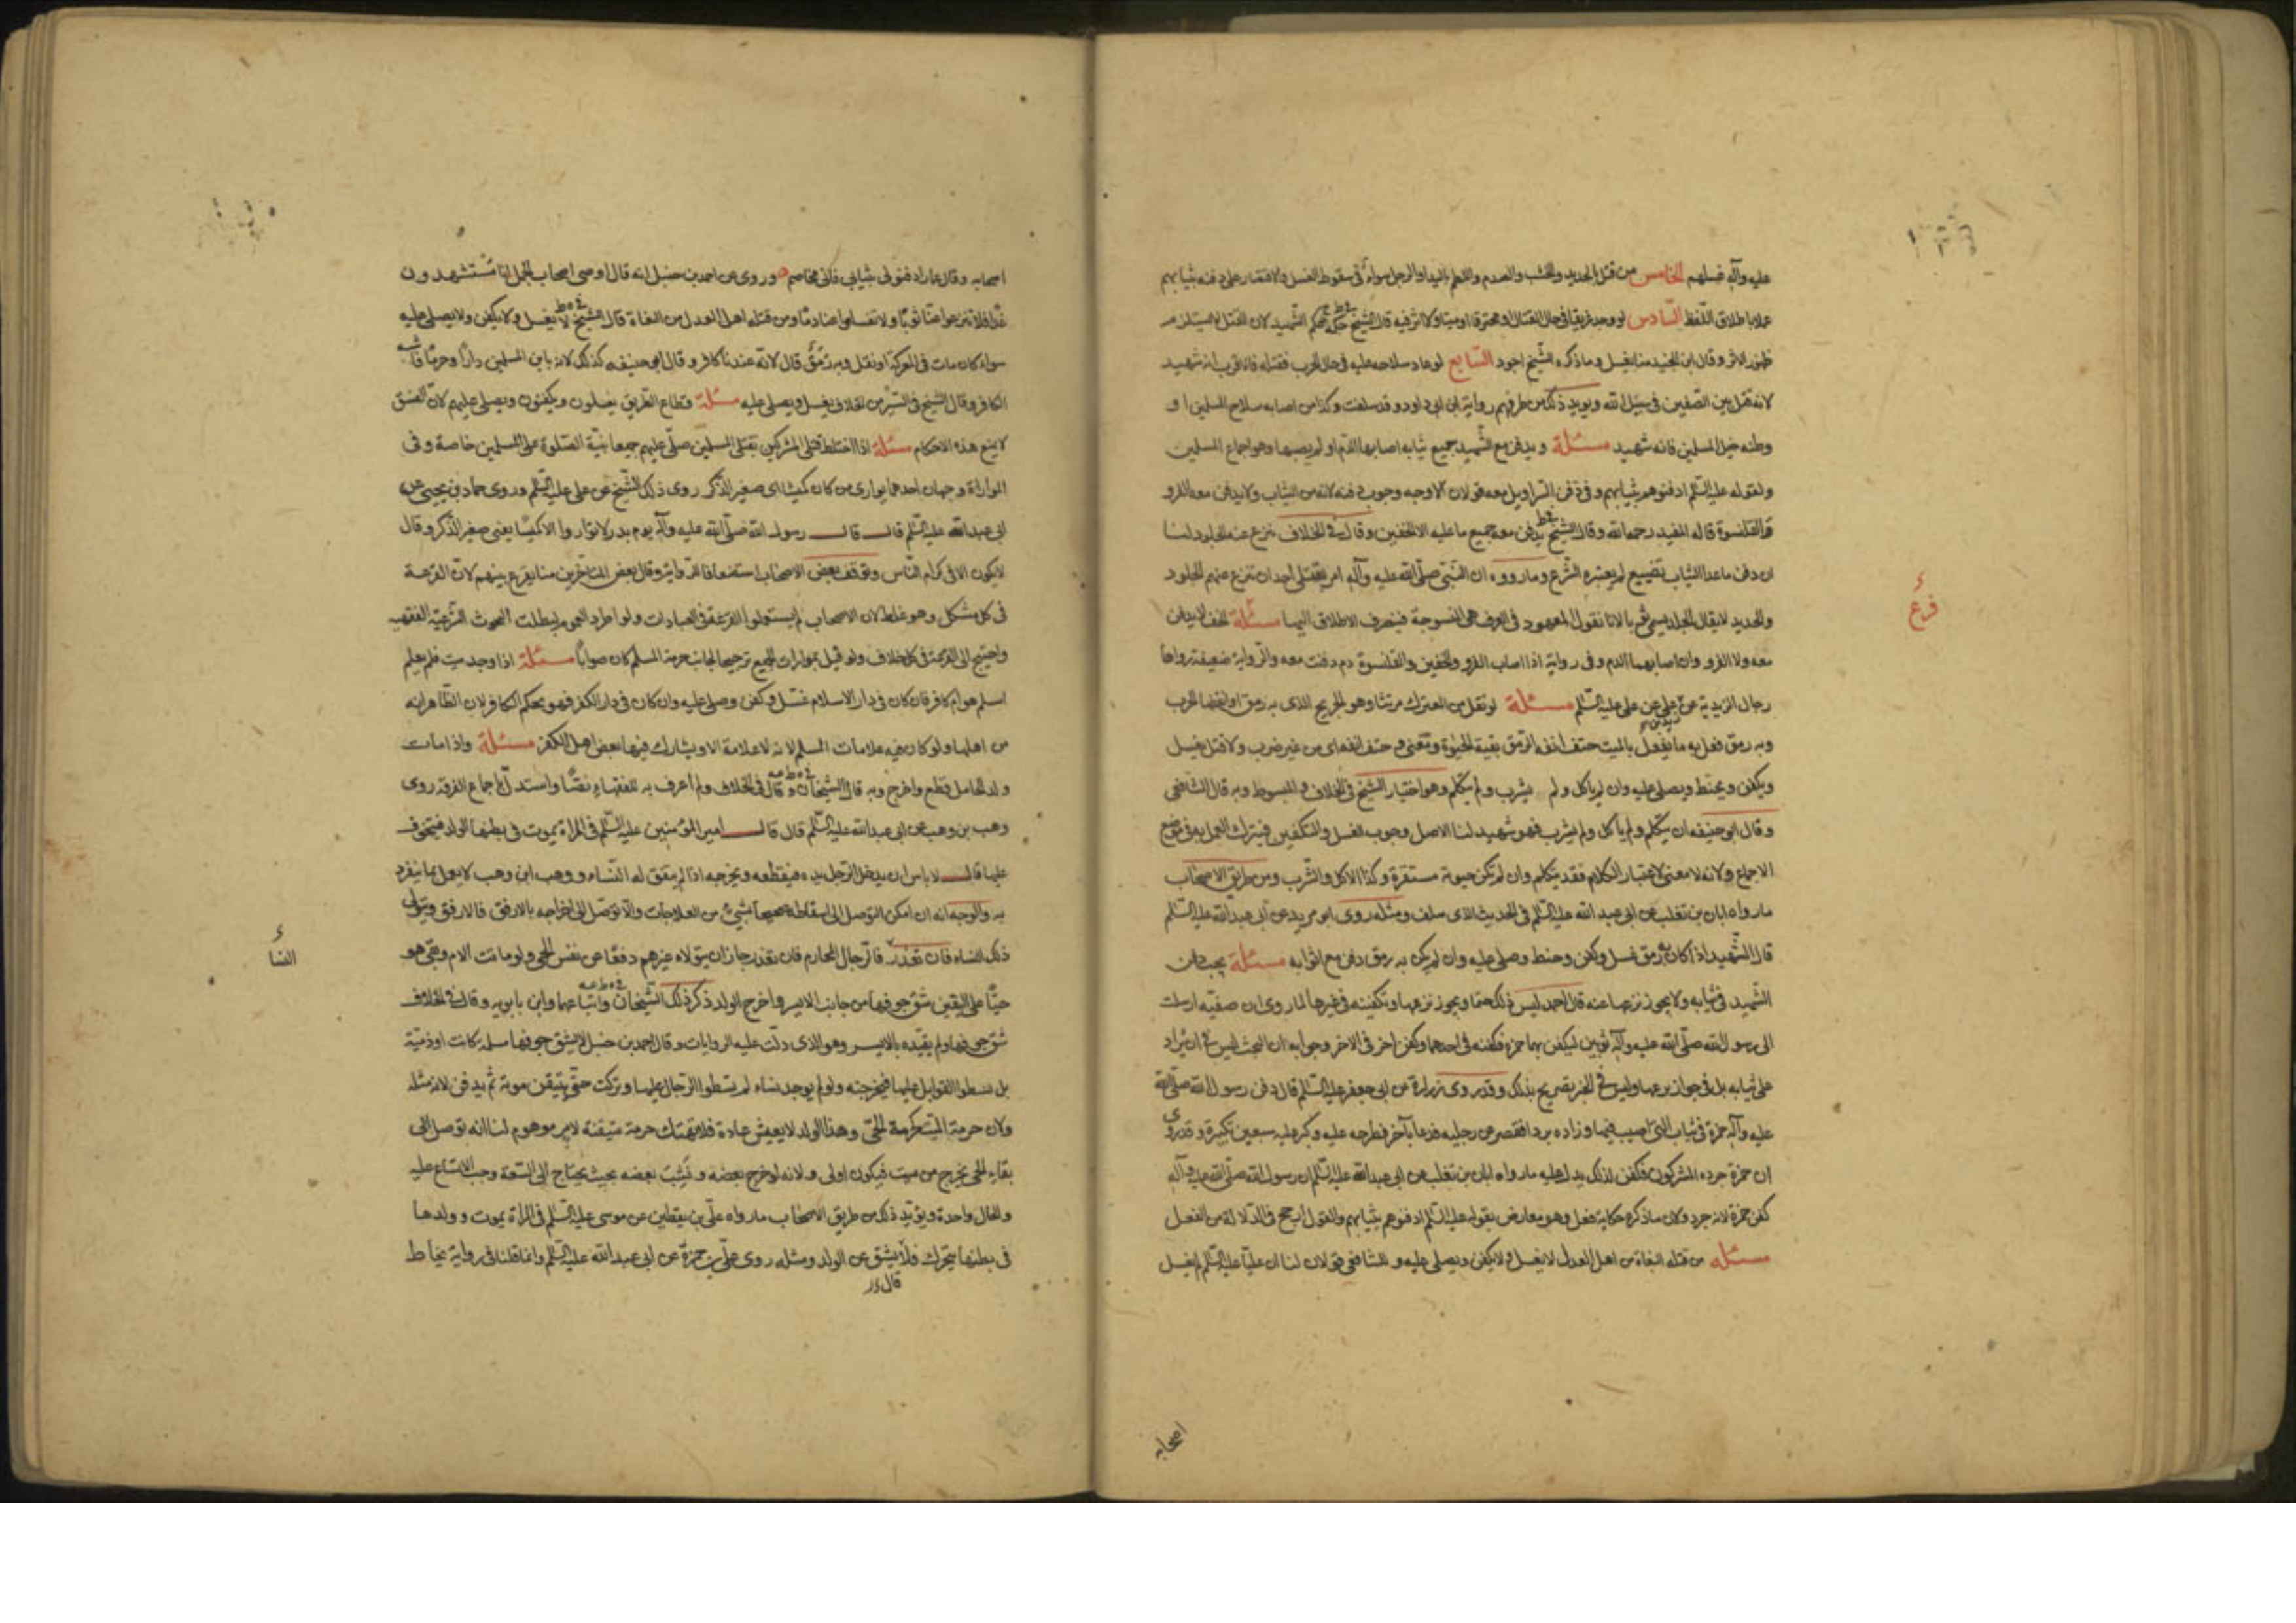 عليه وآله غسلهم الخامس من قتل بالحديد والخشب والصدم واللطم باليد او الرجل سواء في سقوط الغسل والاقتصار على دفنه بثيابهم
عملا باطلاق اللفظ السادس لو وجد غريقا في حال القتال او محترقا او ميتا ولا اثر فيه قال الشيخ حكمه حكم الشهيد لان القتل لا يستلزم
ظهور الاثر وقال ابن الجنيد منا يغسل وما ذكره الشيخ اجود السابع لو عاد سلاحه عليه في حال الحرب فقتله فالاقرب انه شهيد
لانه قتل بين الصفين في سبيل الله ويويد ذلك من طرقهم رواية ابن ابي داود وقد سلفت وكذا من اصابه سلاح المسلمين او
وطئه خيل المسلمين فانه شهيد مسئلة ويدفن مع الشهيد جميع ثيابه اصابها الدم او لم يصبها وهو اجماع المسلمين
ولقوله عليه السلم ادفنوهم بثيابهم وفي دفن السراويل معه قولان الاوجه وجوب دفنه لانه من الثياب ولا يدفن معه الفرو
والقلنسوة قاله المفيد رحمه الله وقال الشيخ يدفن معه جميع ما عليه الا الخفين وقال في الخلاف ينزع عنه الجلود لنا
ان دفن ما عدا الثياب تضييع لم يعتبره الشرع وما رووه ان النبي صلى الله عليه وآله امر بقتلى احد ان تنزع عنهم الجلود
والحديد لا يقال الجلد يسمى ثوبا لانا نقول المعهود في العرف هي المنسوجة فينصرف الاطلاق اليها مسئلة الخف لا يدفن
معه ولا الفرو وان اصابهما الدم وفي رواية اذا اصاب الفرو والخفين والقلنسوة دم دفنت معه والرواية ضعيفة رواها
رجال الزيدية عن زيد بن علي عن علي عليه السلم مسئلة لو نقل من المعترك مرتثا وهو الجريح الذي به رمق او انقضا الحرب
وبه رمق فعل به ما يفعل بالميت حتف انفه الرمق بقية الحيوة ونعني بـ حتف انفه اي من غير ضرب ولا قتل يغسل
ويكفن ويحنط ويصلى عليه وان لم ياكل ولم يشرب ولم يتكلم وهو اختيار الشيخ في الخلاف والمبسوط وبه قال الشافعي
وقال ابو حنيفه ان لم يتكلم ولم ياكل ولم يشرب فهو شهيد لنا الاصل وجوب الغسل والتكفين فيترك العمل به في موضع
الاجماع ولانه لا معنى لاعتبار الكلام فقد يتكلم وان لم تكن حيوته مستقرة وكذا الاكل والشرب ومن طريق الاصحاب
ما رواه ابان بن تغلب عن ابي عبد الله عليه السلم في الحديث الذي سلف ومثله روى ابو مريم عن ابي عبد الله عليه السلم
قال الشهيد اذا كان به رمق غسل وكفن وحنط وصلي عليه وان لم يكن به رمق دفن مع اثوابه مسئلة يجب دفن
الشهيد في ثيابه ولا يجوز نزعها عنه قال احمد ليس ذلك حتما ويجوز نزعها وتكفينه في غيرها لما روى ان صفيه ارسلت
الى رسول الله صلى الله عليه وآله ثوبين ليكفن بهما حمزه فكفنه في احدهما وكفن اخر في الاخر وجوابه ان البحث ليس في ان يزاد
على ثيابه بل في جواز نزعها وليس في الخبر تصريح بذلك وقد روى زرارة عن ابي جعفر عليه السلم قال دفن رسول الله صلى الله
عليه وآله حمزة في ثيابه التي اصيب فيها وزاده بردا فقصر عن رجليه فدعا بآخر فطرحه عليه وكبر عليه سبعين تكبيرة وقد روى
ان حمزة جرده المشركون فكفن لذلك يدل عليه ما رواه ابان بن تغلب عن ابي عبد الله عليه السلم ان رسول الله صلى الله عليه وآله
كفن حمزة لانه جرد ولان ما ذكره حكاية فعل وهو معارض بقوله عليه السلم ادفنوهم بثيابهم والقول ارجح في الدلالة من الفعل
مسئله من قتله البغاة من اهل العدل لا يغسل ولا يكفن ويصلى عليه وللشافعي قولان لنا ان عليا عليه السلم لم يغسل
فرع
اصحابه
اصحابه وقال عمار ادفنوني بثيابي فاني مخاصم وروى عن احمد بن حنبل انه قال اوصى اصحاب الجمل انا مستشهدون
غدا فلا تنزعوا عنا ثوبا ولا تغسلوا عنا دما ومن قتله اهل العدل من البغاة قال الشيخ لا يغسل ولا يكفن ولا يصلى عليه
سواء كان مات في المعركة او نقل وبه رمق قال لانه عندنا كافر وقال ابو حنيفه كذلك لانه باين المسلمين دارا وحربا فاشبه
الكافر وقال الشيخ في السير من الخلاف يغسل ويصلى عليه مسئلة قطاع الطريق يغسلون ويكفنون ويصلى عليهم لان الفسق
لا يمنع هذه الاحكام مسئلة اذا اختلط قتلى المشركين بقتلى المسلمين صلى عليهم جمعا بنية الصلوة على المسلمين خاصة وفي
المواراة وجهان احدهما يوارى من كان كميشا اي صغير الذكر روى ذلك الشيخ عن علي عليه السلم وروى حماد بن يحيى عن
ابي عبد الله عليه السلم قال قال رسول الله صلى الله عليه وآله يوم بدر لا تواروا الا كميشا يعني صغير الذكر وقال
لا يكون الا في كرام الناس وتوقف بعض الاصحاب استضعافا للرواية وقال بعض المتاخرين منا يقرع بينهم لان القرعة
في كل مشكل وهو غلط لان الاصحاب لم يستعملوا القرعة في العبادات ولو اطرد العموم لبطلت البحوث الشرعية الفقهيه
واحتيج الى القرعة في كل خلاف ولو قيل بموارات الجميع ترجيحا لجانب حرمة المسلم كان صوابا مسئلة اذا وجد ميت فلم يعلم
اسلم هو ام كافر فان كان في دار الاسلام غسل وكفن وصلى عليه وان كان في دار الكفر فهو بحكم الكافر لان الظاهر انه
من اهلها ولو كان فيه علامات المسلم لانه لا علامة الا ويشارك فيها بعض اهل الكفر مسئلة واذا مات
ولد الحامل قطع واخرج وبه قال الشيخان وقال في الخلاف ولم اعرف به للفقهاء نصا واستدل باجماع الفرقه روى
وهب بن وهب عن ابي عبد الله عليه السلم قال قال امير المؤمنين عليه السلم في المراة يموت في بطنها الولد فيتخوف
عليها قال لا باس ان يدخل الرجل يده فيقطعه ويخرجه اذا لم يتفق له النساء ووهب ابن وهب لا يعمل بما ينفرد
به والوجه انه ان امكن التوصل الى اسقاطه صحيحا بشيء من العلاجات والا توصل الى اخراجه بالارفق فالارفق ويتولى
ذلك النساء فان تعذر فالرجال المحارم فان تعذر جاز ان يتولاه غيرهم دفعا عن نفس الحي ولو ماتت الام وبقي هو
حيا على اليقين شق جوفها من جانب الايسر واخرج الولد ذكر ذلك الشيخان واتباعهما وابن بابويه وقال في الخلاف
شق جوفها ولم يقيده بالايسر وهو الذي دلت عليه الروايات وقال احمد بن حنبل لا يشق جوفها مسلمة كانت او ذمية
بل يسطوا القوابل عليها فيخرجنه ولو لم يوجد نساء لم يسطوا الرجال عليها وتركت حتى يتيقن موته ثم يدفن لانه مثله
ولان حرمة الميت كحرمة الحي وهذا الولد لا يعيش عادة فلا يهتك حرمة متيقنة لامر موهوم لنا انه توصل الى
بقاء الحي بخرج من ميت فيكون اولى ولانه لو خرج بعضه ونشبت بعضه بحيث يحتاج الى السعة وجب الاتساع عليه
والحال واحدة ويؤيد ذلك من طريق الاصحاب ما رواه علي بن يقطين عن موسى عليه السلم في المراة يموت وولدها
في بطنها يتحرك قال يشق عن الولد ومثله روى علي بن حمزة عن ابي عبد الله عليه السلم وانما قلنا في رواية يخاط
النسا